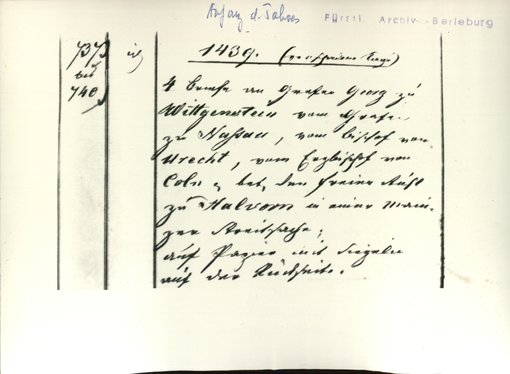 Anfang d. Jahres
Fürstl. Archiv - Berleburg
737
bis
740
1439. (verschiedene Tage)
4 Briefe an Grafen Georg zu
Wittgenstein vom Grafen
zu Nassau, vom Bischof von
Utrecht, vom Erzbischof von
Coln, betr. den freien Stuhl
zu Halvern in einer
Streitsache;
auf Papier mit Siegeln
auf der Rückseite.